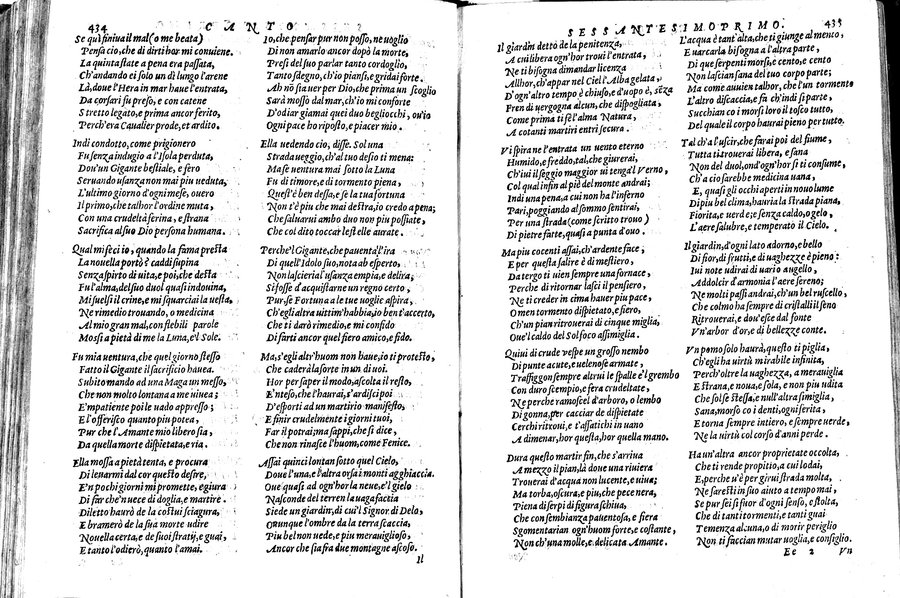 434 CANTO
Se qui finiua il mal (o me beata)
Pensa cio, che di dirti hor mi conuiene.
La quinta state a pena era passata,
Ch'andando ei solo un dì lungo l'arene
Là, doue l'Hera in mar haue l'entrata,
Da corsari fu preso, e con catene
Stretto legato, e prima ancor ferito,
Perch'era Caualier prode, et ardito.
Indi condotto, come prigionero
Fu senza indugio a l'Isola perduta,
Dou'un Gigante bestiale, e fero
Seruando usanza non mai piu ueduta,
L'ultimo giorno d'ogni mese, ouero
Il primo, che talhor l'ordine muta,
Con una crudeltà ferina, e strana
Sacrifica al suo Dio persona humana.
Qual mi feci io, quando la fama presta
La nouella portò? caddi supina
Senza spirto di uita, e poi, che desta
Fu l'alma, del suo duol quasi indouina,
Mi suelsi il crine, e mi squarciai la uesta,
Ne rimedio trouando, o medicina
Al mio gran mal, con flebili parole
Mossi a pietà di me la Luna, e'l Sole.
Fu mia uentura, che quel giorno stesso
Fatto il Gigante il sacrificio hauea.
Subito mando ad una Maga un messo,
Che non molto lontana a me uiuea;
E'mpatiente poi le uado appresso;
E l'offerisco quanto piu potea,
Pur che l'Amante mio liber o sia,
Da quella morte dispietata, e ria.
Ella mossa a pietà tenta, e procura
Di leuarmi dal cor questo desire,
E'n pochi giorni mi promette, e giura
Di far che'n uece di doglia, e martire
Diletto haurò de la costui sciagura,
E bramerò de la sua morte udire
Nouella certa, e de' suoi stratij, e guai
E tanto l'odierò, quanto l'amai.
Io, che pensar pur non posso, ne uoglio
Di non amarlo ancor dopò la morte,
Presi del suo parlar tanto cordoglio,
Tanto sdegno, ch'io piansi, e gridai forte.
Ah nō sia uer per Dio, che prima un scoglio
Sarà mosso dal mar, ch'io mi conforte
D'odiar giamai quei duo begliocchi, ou'io
Ogni pace ho riposto, e piacer mio.
Ella uedendo cio, disse. Sol una
Strada ueggio, ch'al tuo desio ti mena:
Ma se uentura mai sotto la Luna
Fu di timore, e di tormento piena,
Quest'è ben dessa, e se la tua fortuna
Non t'è piu che mai destra, io credo a pena;
Che saluarui ambo duo non piu possiate,
Che col dito toccar le stelle aurate.
Perche'l Gigante, che pauenta l'ira
Di quel'Idolo suo, nota ab esperto,
Non lascieria l'usanza empia, e delira;
Si fosse d'acquistarne un regno certo,
Pur se Fortuna a le tue uoglie aspira,
Ch'egli altra uittim'habbia, io ben t'accerto,
Che ti darò rimedio, e mi confido
Di farti ancor quel fiero amico, e fido.
Ma, s'egli altr'huom non haue, io ti protesto,
Che caderà la sorte in un di uui.
Hor per saper il modo, ascolta il resto,
E'nteso, che l'haurai, s'ardisci poi
D'esporti ad un martirio manifesto,
E finir crudelmente i giorni tuoi,
Far il potrai; ma sappi, che ti dice,
Che non rinasce l'huom, come Fenice.
Assai quinci lontan sotto quel Cielo,
Doue l'una, e l'altra orsa i monti agghiaccia.
Oue quasi ad ogn'hor la neue, e'l gielo
Nasconde del terren la uaga faccia
Siede un giardin, di cui'l Signor di Delo,
Ounque l'ombre da la terra scaccia,
Piu bel non uede, e piu merauiglioso,
Ancor che sia fra due montagne ascoso.
Il
SESSANTESIMOPRIMO. 435
Il giardin detto de la penitenza,
A cui libera ogn'hor troui l'entrata,
Ne ti bisogna dimandar licenza
Allhor, ch'appar nel Ciel l'Alba gelata;
D'ogn'altro tempo è chiuso, e d'uopo è, sēza
Fren di uergogna alcun, che dispogliata,
Come prima ti fè l'alma Natura,
A cotanti martiri entri secura.
Vi spira ne l'entrata un uento eterno
Humido, e freddo, tal, che giurerai,
Ch'iui il seggio maggior ui tenga l'Verno,
Col qual infin al piè del monte andrai;
Indi una pena, a cui non ha l'inferno
Pari, poggiando al sommo sentirai,
Per una strada (come scritto trouo)
Di pietre fatte, quasi a punta d'ouo.
Ma piu cocenti assai, ch'ardente face;
E per questa salire è di mestiero,
Da tergo ti uien sempre una fornace,
Perche di ritornar lasci il pensiero,
Ne ti creder in cima hauer piu pace,
O men tormento dispietato, e fiero,
Ch'un pian ritrouerai di cinque miglia,
Oue'l caldo del Solfoco assimiglia.
Quiui di crude uespe un grosso nembo
Di punte acute, e uelenose armate,
Trafiggon sempre altrui le spalle e'l grembo
Con duro scempio, e fera crudeltate;
Ne perche ramoscel d'arboro, o lembo
Di gonna, per cacciar de dispietate
Cerchi ritroui, e t'affatichi in uano
A dimenar, hor questa, hor quella mano.
Dura questo martir fin, che s'arriua
A mezzo il pian, là doue una riuiera
Trouerai d'acqua non lucente, e uiua;
Ma torba, oscura, e piu, che pece nera,
Piena di serpi di figura schiua,
Che con sembianza pauentosa, e fiera
Sgomentarian ogn'huom forte, e costante,
Non ch'una molle, e delicata Amante.
L'acqua è tant'alta, che ti giunge al mento,
E uarcarla bisogna a l'altra parte;
Di que serpenti morsi, e cento, e cento
Non lascian sana del tuo corpo parte;
Ma come auuien talhor, che l'un tormento
L'altro discaccia, e fà ch'indi si parte,
Succhian co i morsi loro il tosco tutto,
Del quale il corpo haurai pieno per tutto.
Tal ch'a l'uscir, che farai poi del fiume,
Tutta ti trouerai libera, e sana
Non del duol, ond'ogn'hor si ti consume,
Ch'a cio sarebbe medicina uana,
E, quasi gli occhi aperti in nouo lume
Di piu bel clima, hauria la strada piana,
Fiorita, e uerde; e senza caldo, o gelo,
L'aere salubre, e temperato il Cielo.
Il giardin, d'ogni lato adorno, e bello
Di fior, di frutti, e di uaghezze è pieno:
Iui note udirai di uario augello,
Addolcir d'armonia l'aere sereno;
Ne molti passi andrai, ch'un bel ruscello,
Che colmo ha sempre di cristalli il seno
Ritrouerai, e dou'esce dal fonte
Vn'arbor d'or, e di bellezze conte.
Vn pomo solo haurà, questo ti piglia,
Ch'egli ha uirtù mirabile infinita,
Perch'oltre la uaghezza, a merauiglia
E strana, e noua, e sola, e non piu udita
Che solse stessa, e null'altra simiglia,
Sana, morso co i denti, ogni ferita,
E torna sempre intiero, e sempre uerde,
Ne la uirtù col corso d'anni perde.
Ha un'altra ancor proprietate occolta,
Che ti rende propitio, a cui lo dai,
E, perche u'è per girui strada molta,
Ne saresti in suo aiuto a tempo mai,
Se pur sei si fuor d'ogni senso, e stolta,
Che di tanti tormenti, e tanti guai
Temenza alcuna, o di morir periglio
Non ti faccian mutar uoglia, e consiglio.
Ee 2 Vn